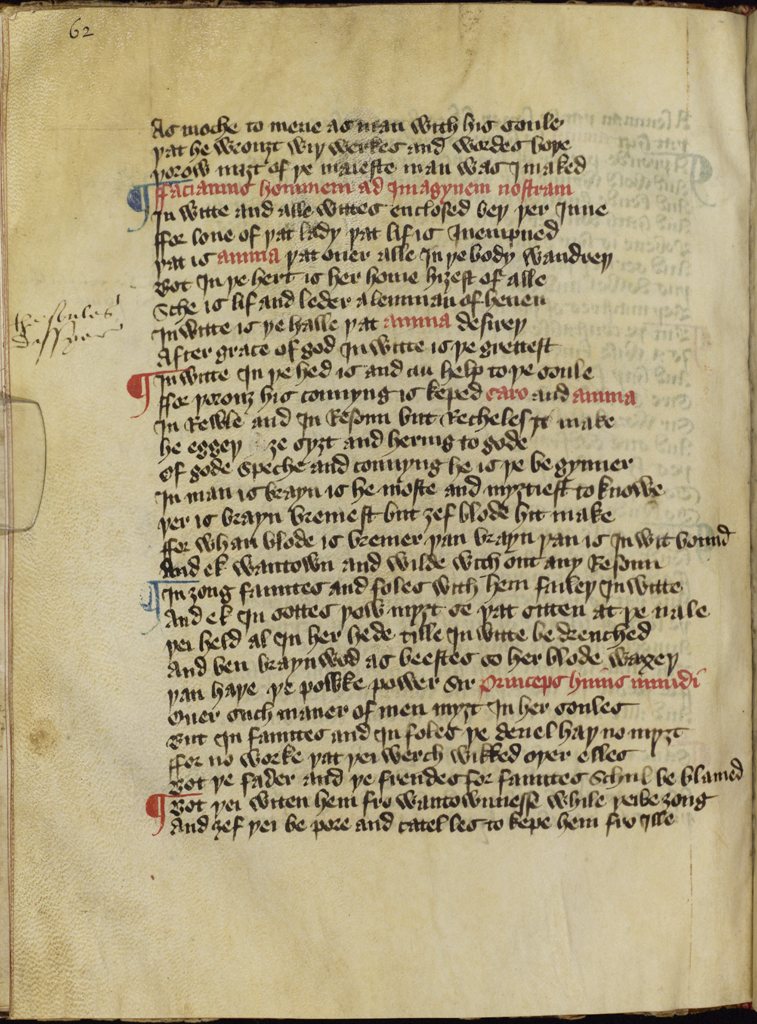 62
As moche to mene as man with his soule
þat he wrouȝt wiþ werkes and wordes boþe
þorow miȝt of þe maieste man was I maked
¶ ffaciamus hominem ad Imagynem nostram
In witte and alle wittes enclosed beþ þer Inne
ffor loue of þat lady þat lif is Inempned
þat is anima þat ouer alle In þe body wandreþ
Bot In þe hert is her home hiȝest of alle
Sche is lif and leder a lemman of heuen
In witte is þe halle þat anima desireþ
After grace of god In witte is þe grettest
¶ In witte In þe hed is and an help to þe soule
ffor þorouȝ his connyng is keped caro and anima
In Rewle and In Resoun but Recheles it make
he eggeþ ȝe syȝt and hering to gode
Of gode speche and connyng he is þe begynner
In man is brayn is he moste and myȝtiest to knowe
þer is brayn bremest but ȝef blode hit make
ffor whan blode is bremer þan brayn þan is In wit bound
And ek wantown and wilde with out any Resoun
¶ In ȝong fauntes and foles with hem faileþ In witte
And ek In sottes ȝow myȝt se þat sitten at þe nale
þei held al In her hede tille In witte be drenched
And ben braynwod as beestes so her blode waxeþ
þan haþe þe powke power Sir Princeps huius mundi
Ouer such maner of men myȝt In her soules
But In fauntes and In foles þe deuel haþ no myȝt
ffor no worke þat þei werch wikked oþer elles
Bot þe fader and þe frendes for fauntes schul be blamed
¶ Bot þei witen hem fro wantownnesse while þei be ȝong
And ȝef þei be pore and catel les to kepe hem fro ille